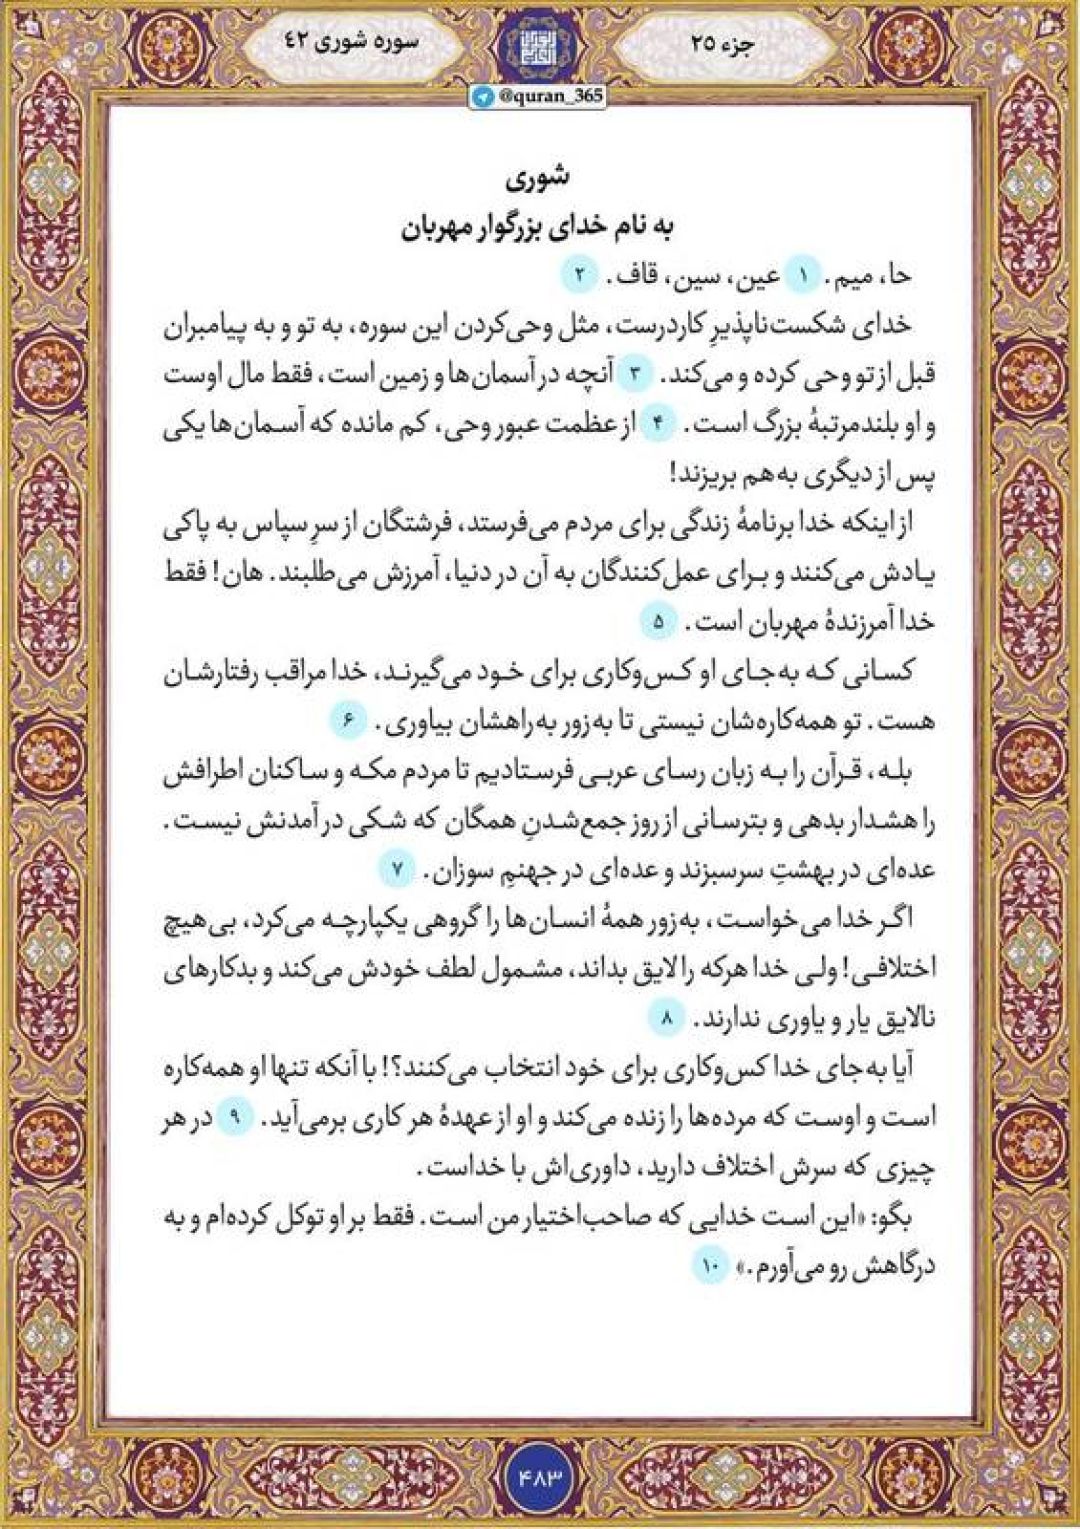 جزء ۲۵
سوره شوری ۴۲
@quran_365
شوری
به نام خدای بزرگوار مهربان
حا، میم. ۱ عین، سین، قاف. ۲
خدای شکست‌ناپذیرِ کاردرست، مثل وحی‌کردن این سوره، به تو و به پیامبران
قبل از تو وحی کرده و می‌کند. ۳ آنچه در آسمان‌ها و زمین است، فقط مال اوست
و او بلندمرتبهٔ بزرگ است. ۴ از عظمت عبور وحی، کم مانده که آسمان‌ها یکی
پس از دیگری به‌هم بریزند!
از اینکه خدا برنامهٔ زندگی برای مردم می‌فرستد، فرشتگان از سرِ سپاس به پاکی
یادش می‌کنند و برای عمل‌کنندگان به آن در دنیا، آمرزش می‌طلبند. هان! فقط
خدا آمرزندهٔ مهربان است. ۵
کسانی که به‌جای او کس‌وکاری برای خود می‌گیرند، خدا مراقب رفتارشان
هست. تو همه‌کاره‌شان نیستی تا به‌زور به‌راهشان بیاوری. ۶
بله، قرآن را به زبان رسای عربی فرستادیم تا مردم مکه و ساکنان اطرافش
را هشدار بدهی و بترسانی از روز جمع‌شدنِ همگان که شکی در آمدنش نیست.
عده‌ای در بهشتِ سرسبزند و عده‌ای در جهنمِ سوزان. ۷
اگر خدا می‌خواست، به‌زور همهٔ انسان‌ها را گروهی یکپارچه می‌کرد، بی‌هیچ
اختلافی! ولی خدا هرکه را لایق بداند، مشمول لطف خودش می‌کند و بدکارهای
نالایق یار و یاوری ندارند. ۸
آیا به‌جای خدا کس‌وکاری برای خود انتخاب می‌کنند؟! با آنکه تنها او همه‌کاره
است و اوست که مرده‌ها را زنده می‌کند و او از عهدهٔ هر کاری برمی‌آید. ۹ در هر
چیزی که سرش اختلاف دارید، داوری‌اش با خداست.
بگو: «این است خدایی که صاحب‌اختیار من است. فقط بر او توکل کرده‌ام و به
درگاهش رو می‌آورم.» ۱۰
۴۸۳